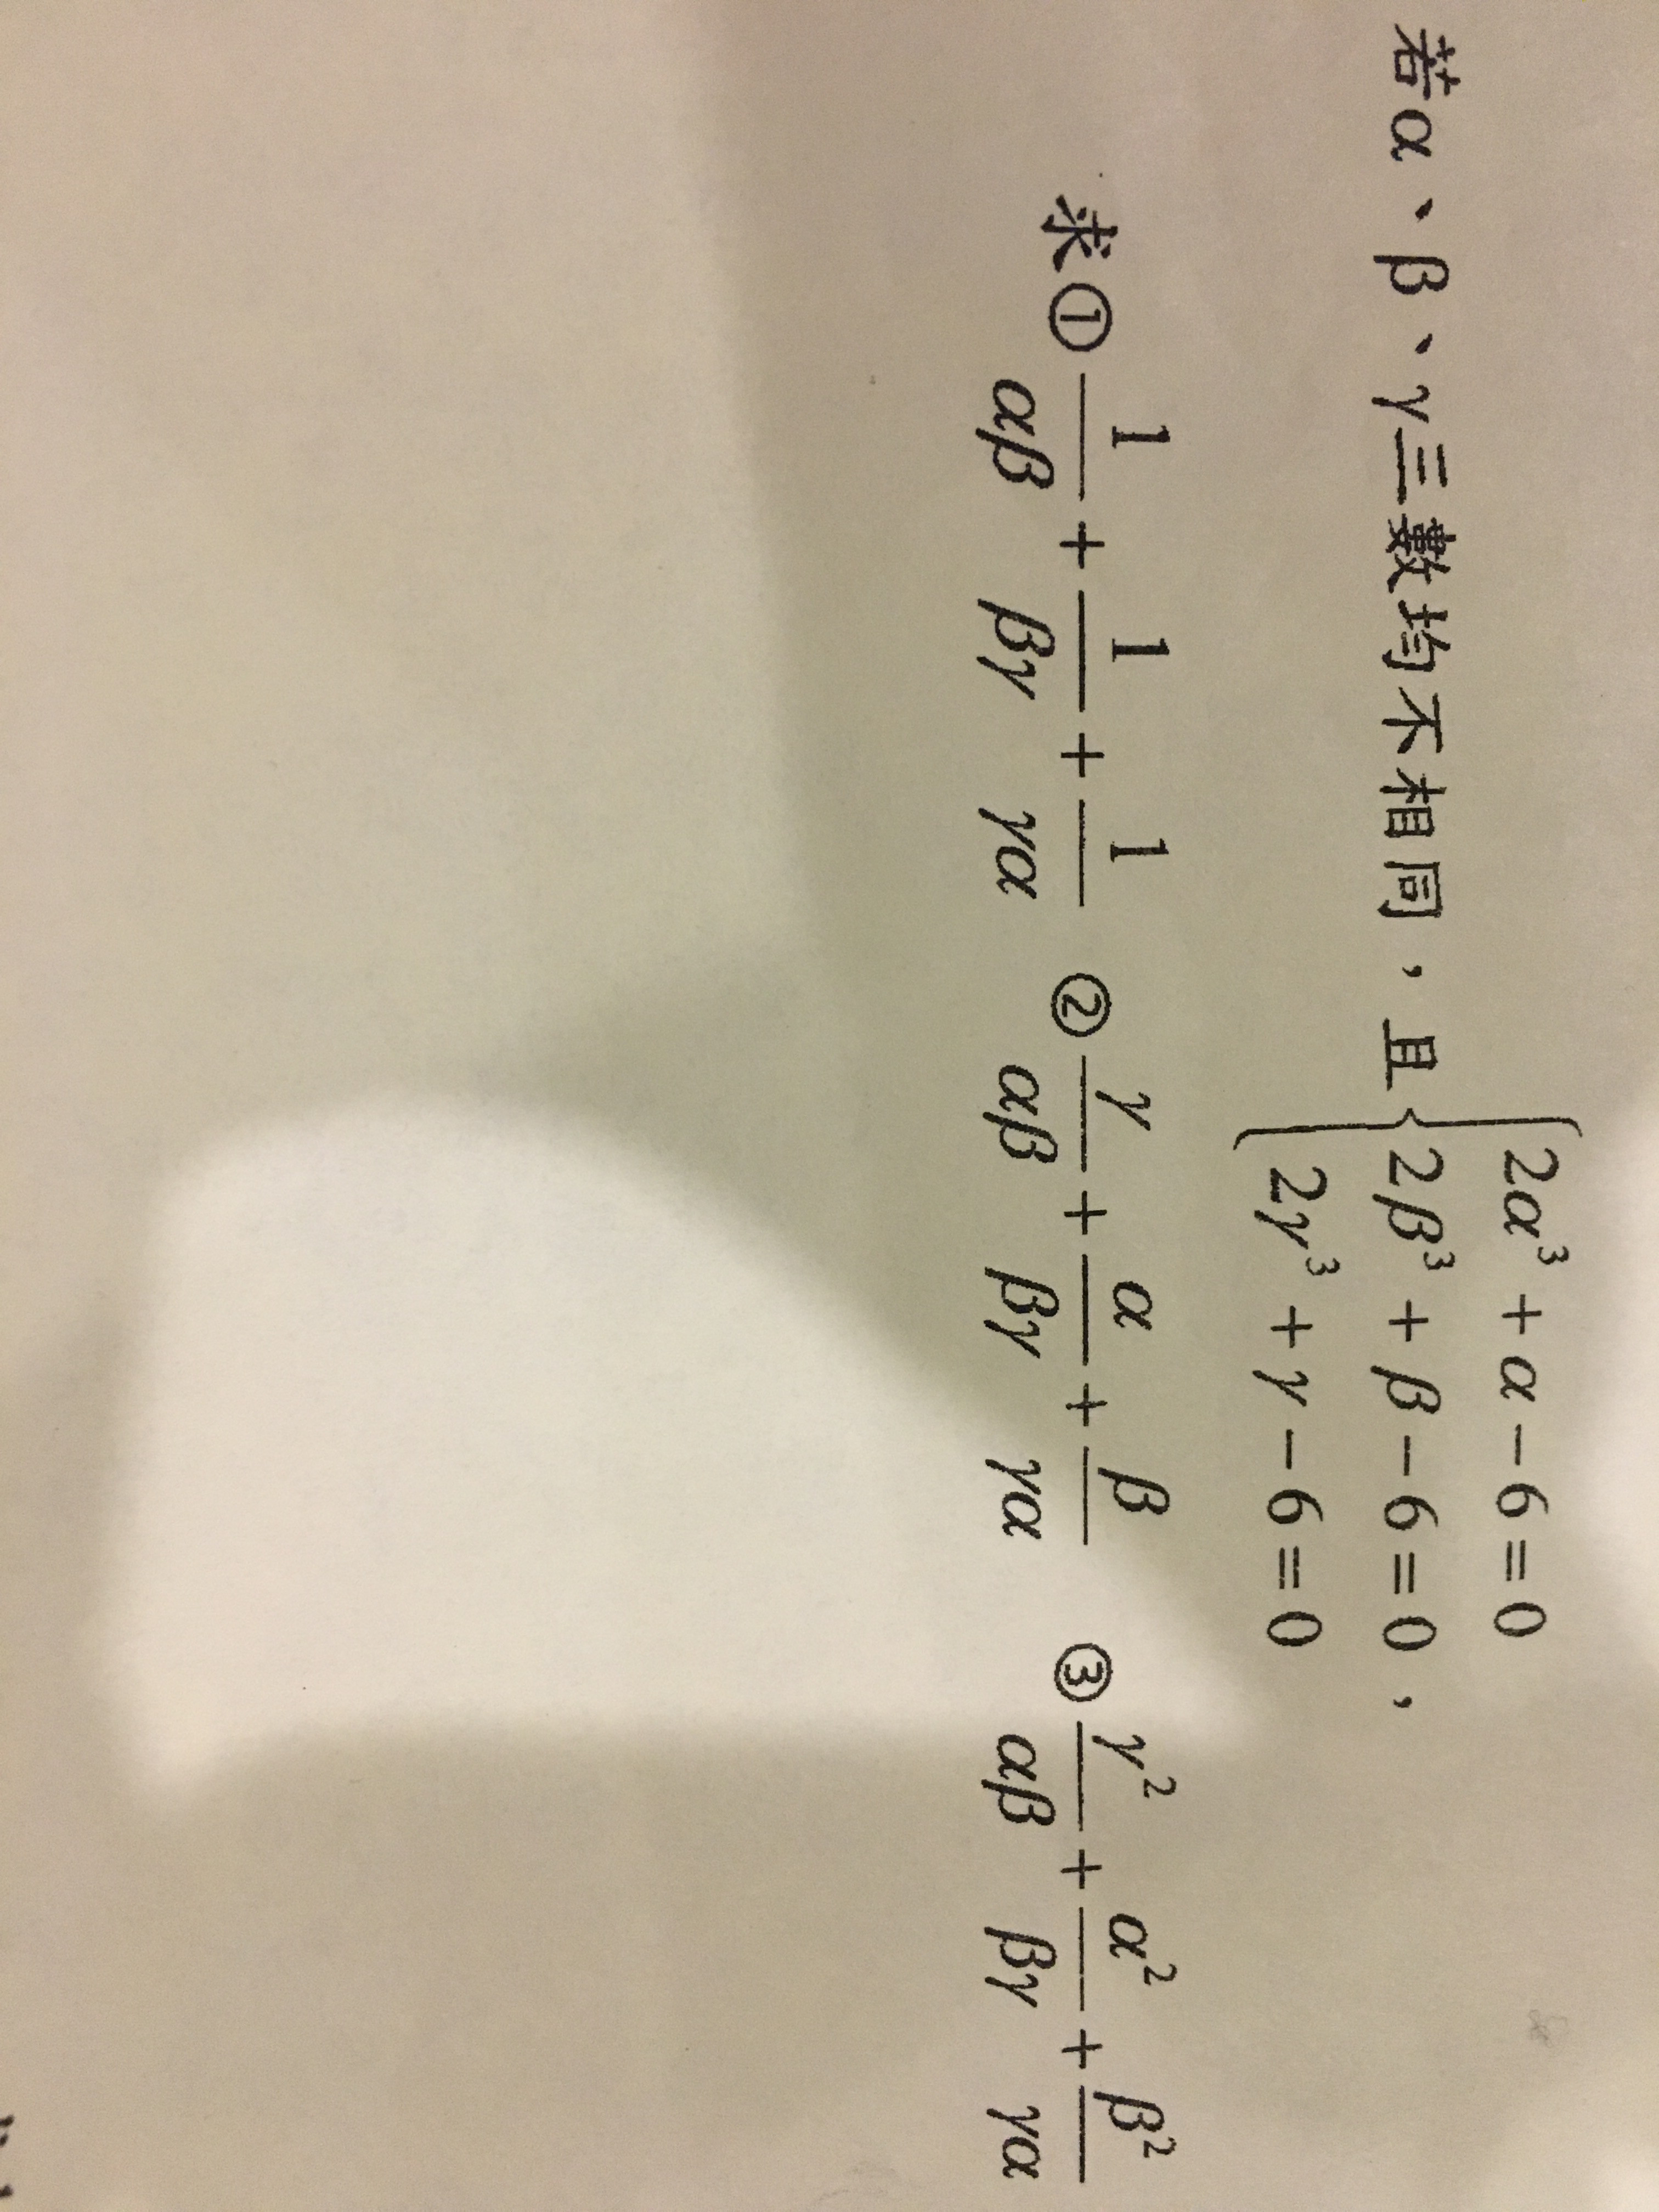 若α、β、γ三數均不相同，且{2α³ + α − 6 = 0
2β³ + β − 6 = 0，
2γ³ + γ − 6 = 0
求① 1/αβ + 1/βγ + 1/γα ② γ/αβ + α/βγ + β/γα ③ γ²/αβ + α²/βγ + β²/γα